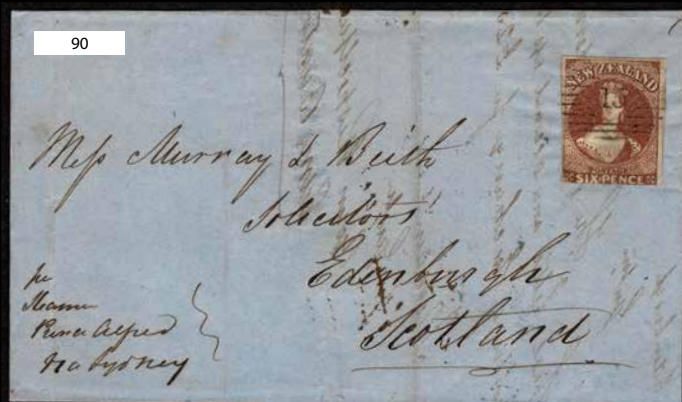 90
NEW ZEALAND
15
SIX PENCE
Mess Murray & Beith
Solicitors
Edinburgh
Scotland
per
Steamer
Prince Alfred
via Sydney